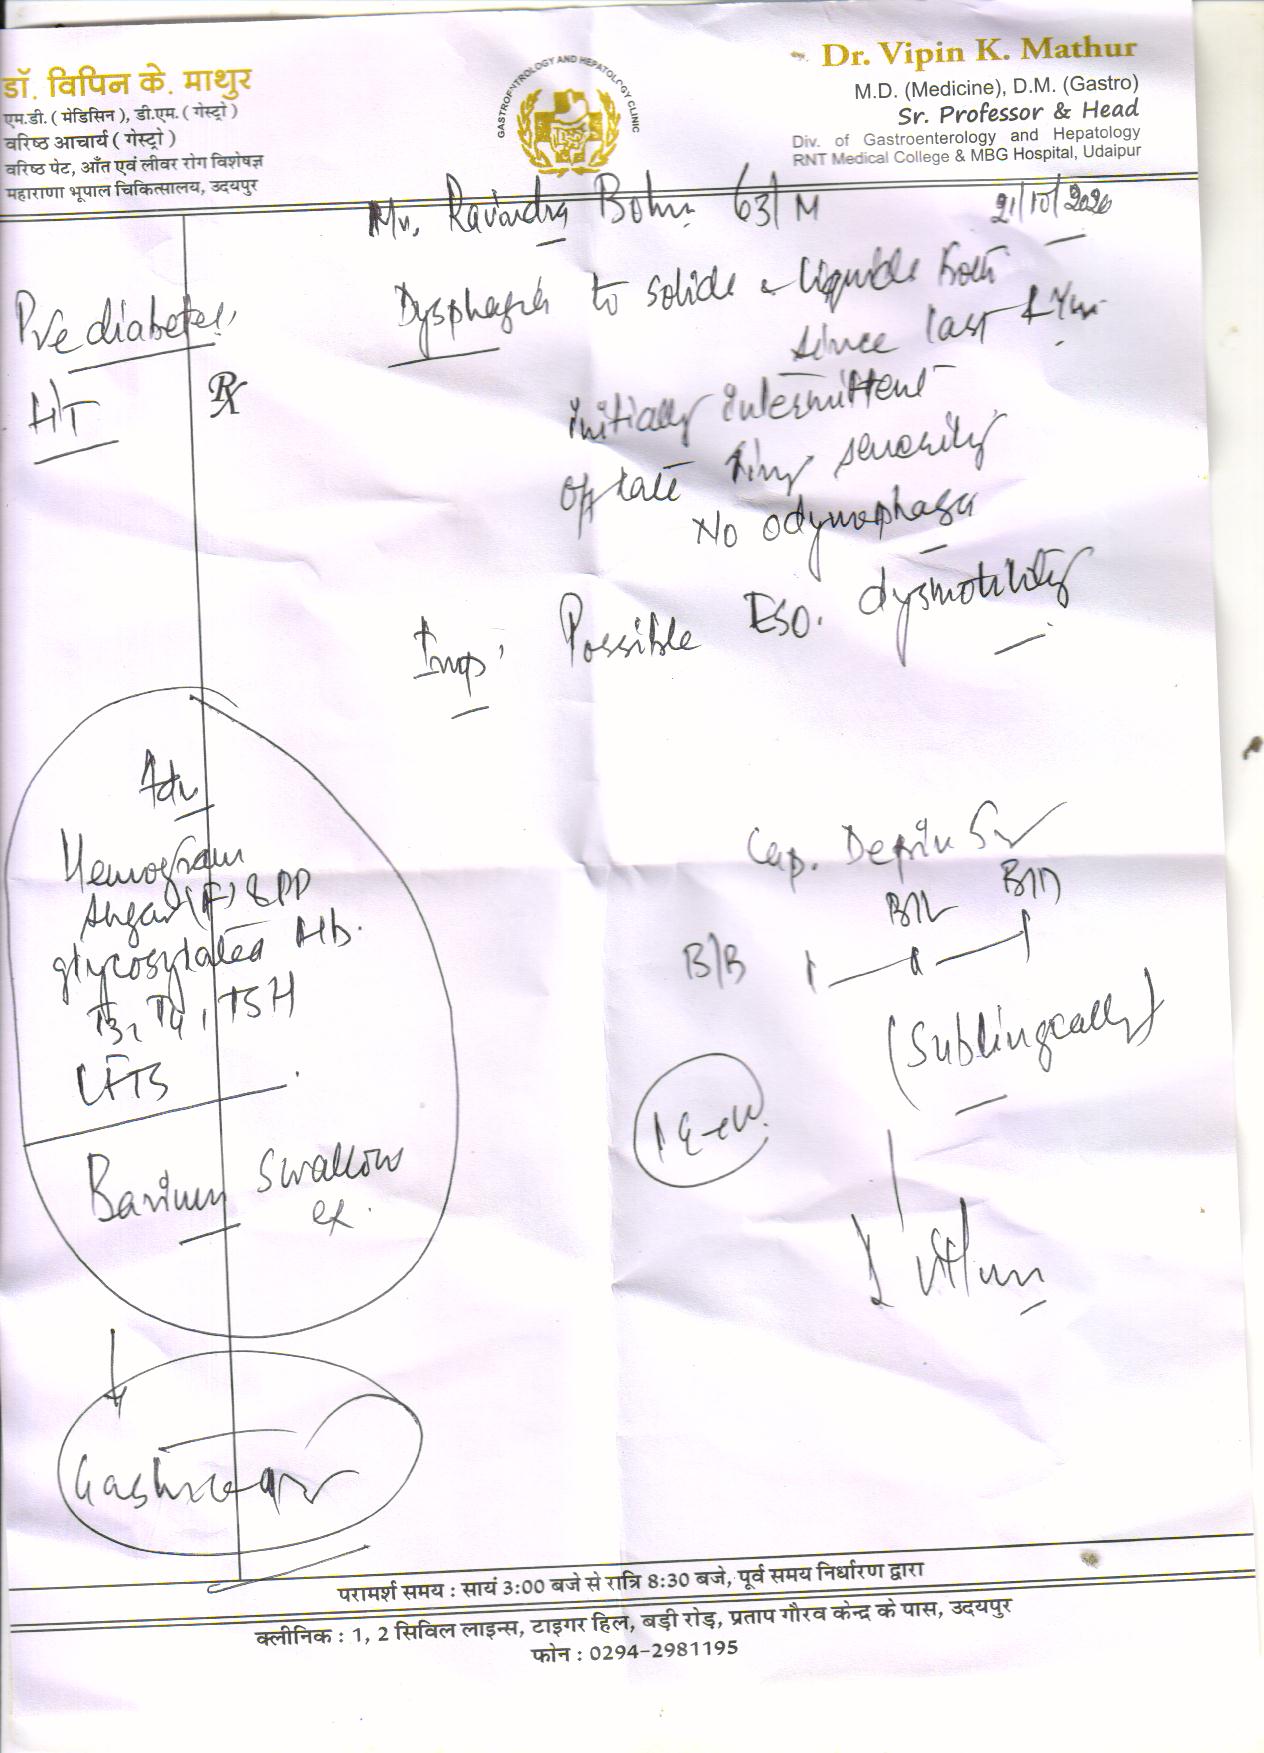 डॉ. विपिन के. माथुर
एम.डी. ( मेडिसिन ), डी.एम. ( गेस्ट्रो )
वरिष्ठ आचार्य ( गेस्ट्रो )
वरिष्ठ पेट, आँत एवं लीवर रोग विशेषज्ञ
महाराणा भूपाल चिकित्सालय, उदयपुर
GASTROENTROLOGY AND HEPATOLOGY CLINIC
Dr. Vipin K. Mathur
M.D. (Medicine), D.M. (Gastro)
Sr. Professor & Head
Div. of Gastroenterology and Hepatology
RNT Medical College & MBG Hospital, Udaipur
Mr. Ravindra 63/M
21/10/2020
Prediabetes
HT
Rx
Dysphagia to solids & liquids both
since last
initially intermittent
of late severity
No odynophagia
Imp: Possible ESO. dysmotility
Adv
Hemogram
Sugar (F) & PP
glycosylated Hb.
T3, T4, TSH
LFTs
Barium Swallow
ex.
Cap. Depin 5
B/B
(Sublingually)
परामर्श समय : सायं 3:00 बजे से रात्रि 8:30 बजे, पूर्व समय निर्धारण द्वारा
क्लीनिक : 1, 2 सिविल लाइन्स, टाइगर हिल, बड़ी रोड़, प्रताप गौरव केन्द्र के पास, उदयपुर
फोन : 0294-2981195